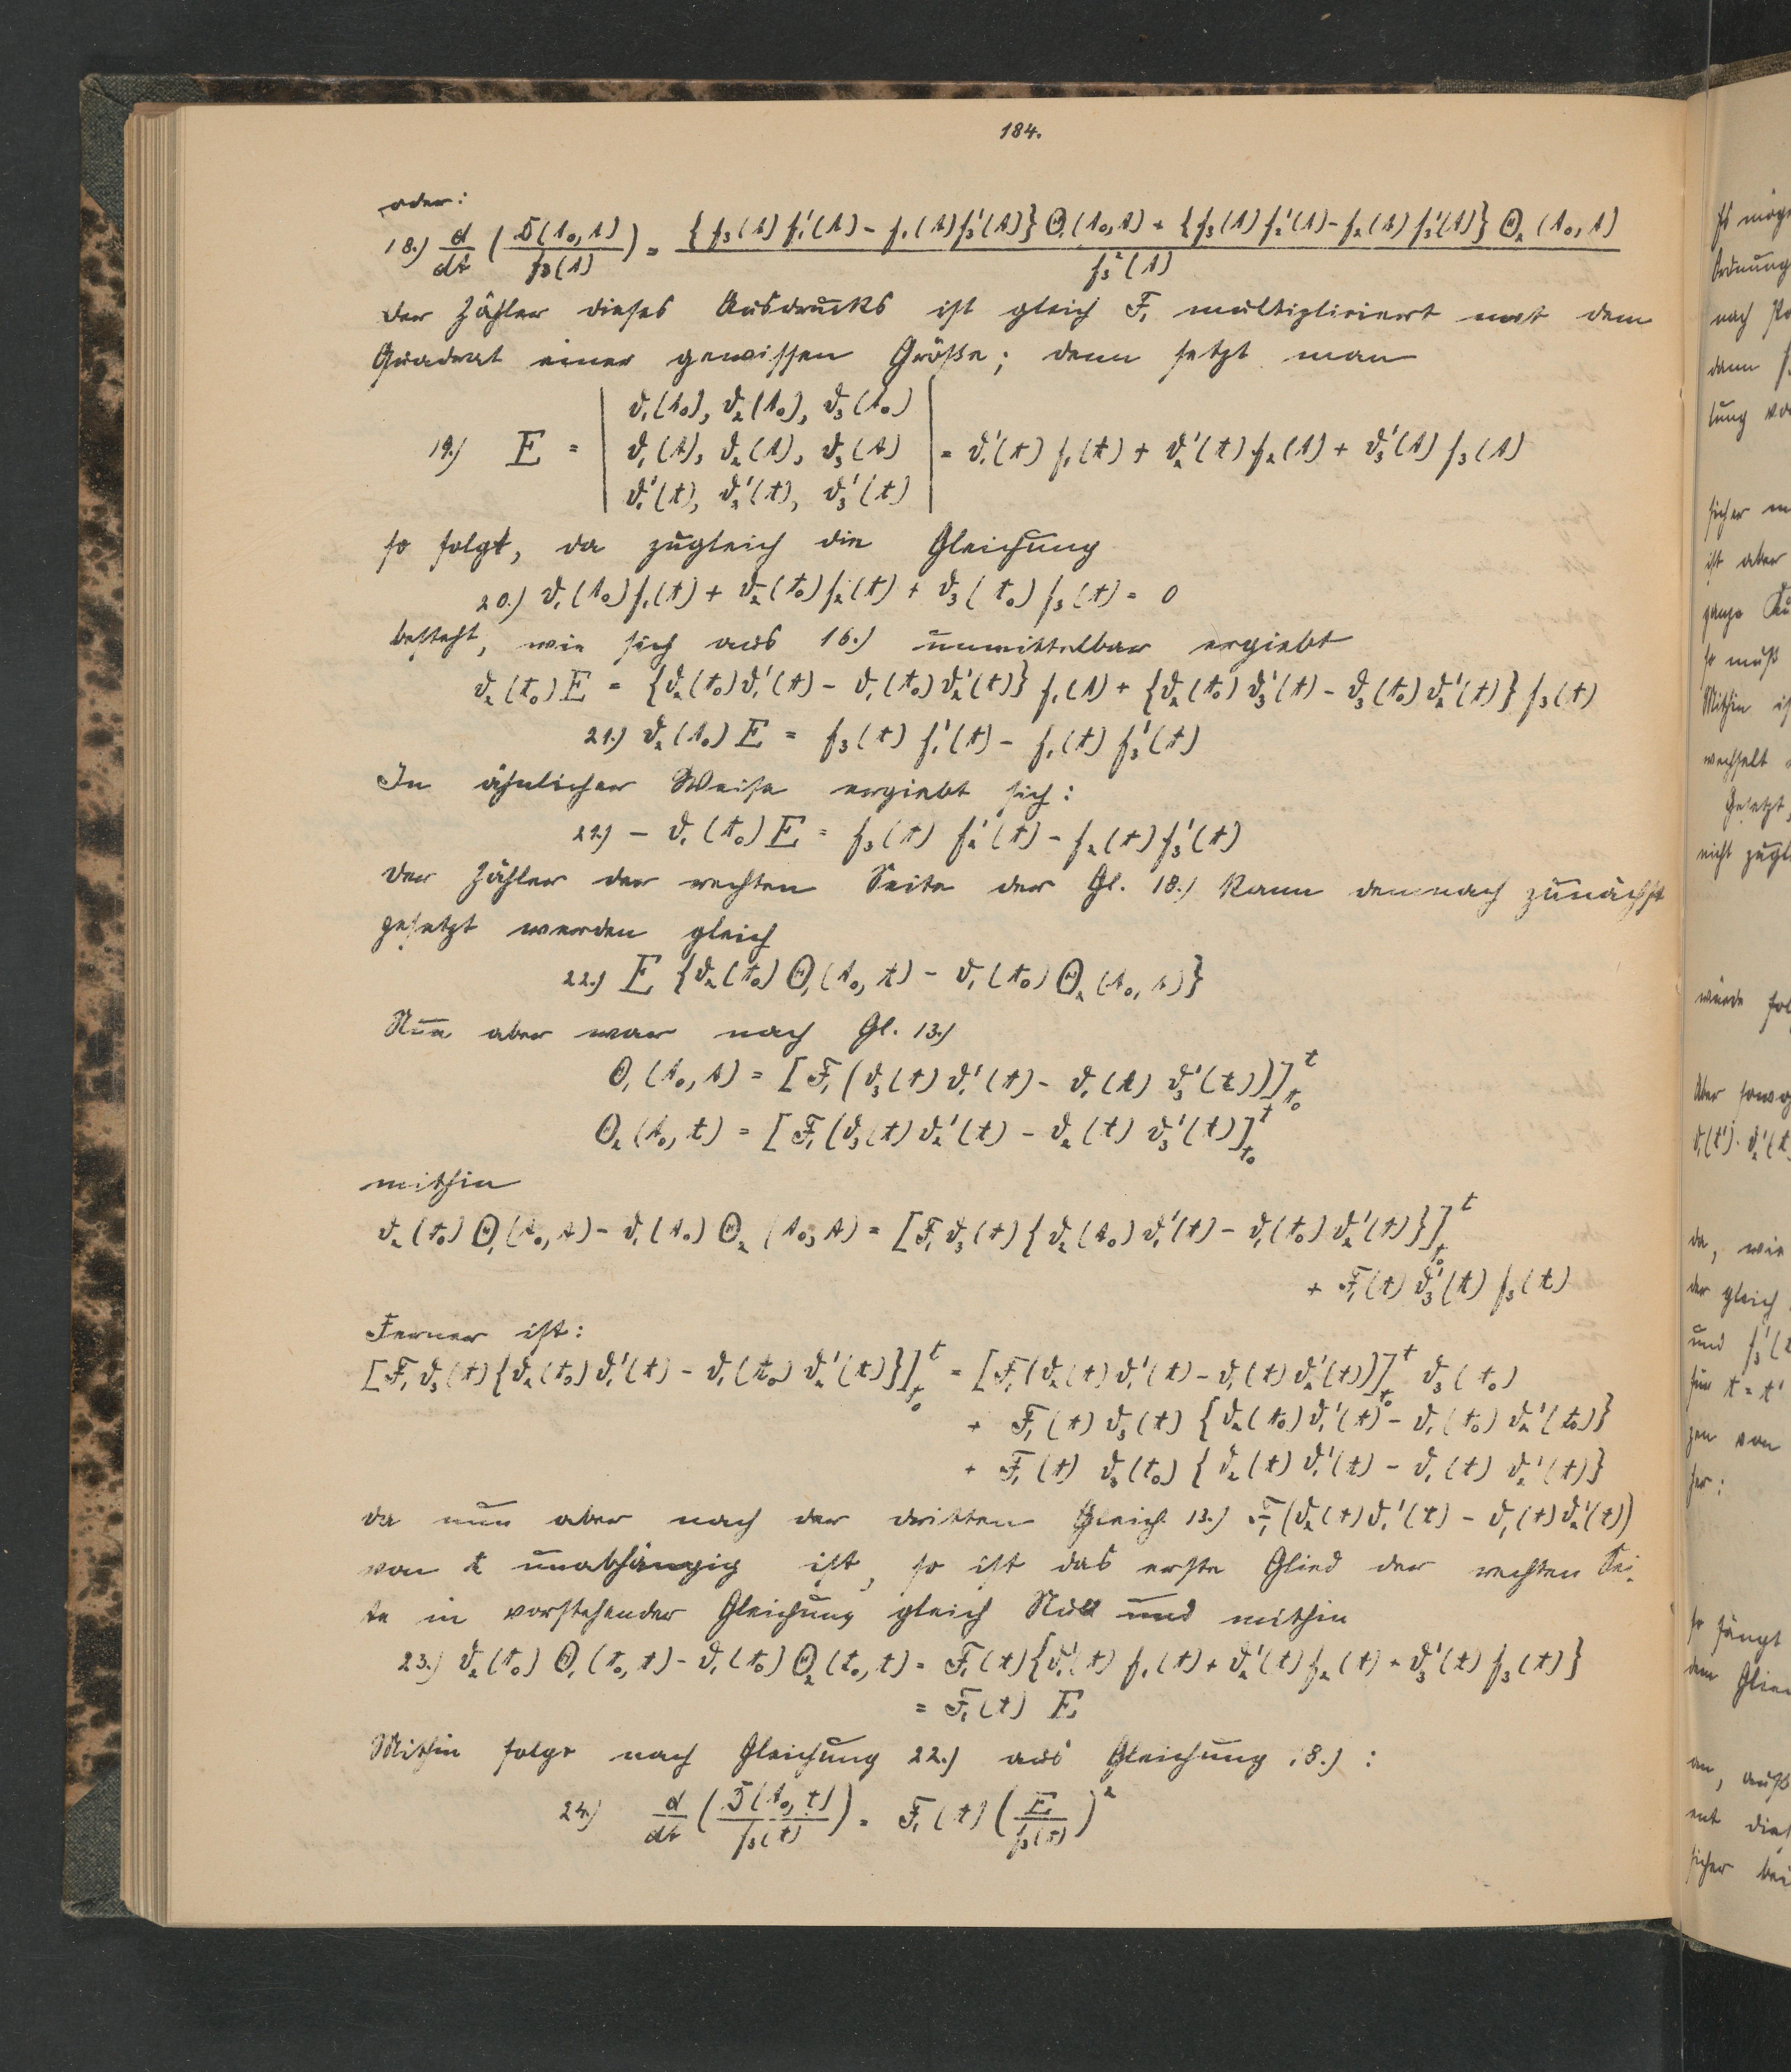 184.
oder:
18.) d/dt (D(t₀,t)/f₃(t)) = {f₃(t) f₁'(t) - f₁(t) f₃'(t)} Θ₁(t₀,t) + {f₃(t) f₂'(t) - f₂(t) f₃'(t)} Θ₂(t₀,t) / f₃²(t)
der Zähler dieses Ausdrucks ist gleich F₁ multipliciert mit dem
Quadrat einer gewissen Größe; denn setzt man
19.) E = | ϑ₁(t₀), ϑ₂(t₀), ϑ₃(t₀)
ϑ₁(t), ϑ₂(t), ϑ₃(t)
ϑ₁'(t), ϑ₂'(t), ϑ₃'(t) | = ϑ₁'(t) f₁(t) + ϑ₂'(t) f₂(t) + ϑ₃'(t) f₃(t)
so folgt, da zugleich die Gleichung
20.) ϑ₁(t₀) f₁(t) + ϑ₂(t₀) f₂(t) + ϑ₃(t₀) f₃(t) = 0
besteht, wie sich aus 16.) unmittelbar ergiebt
ϑ₂(t₀) E = {ϑ₂(t₀) ϑ₁'(t) - ϑ₁(t₀) ϑ₂'(t)} f₁(t) + {ϑ₂(t₀) ϑ₃'(t) - ϑ₃(t₀) ϑ₂'(t)} f₃(t)
21.) ϑ₂(t₀) E = f₃(t) f₁'(t) - f₁(t) f₃'(t)
In ähnlicher Weise ergiebt sich:
22.) - ϑ₁(t₀) E = f₃(t) f₂'(t) - f₂(t) f₃'(t)
der Zähler der rechten Seite der Gl. 18.) kann demnach zunächst
gesetzt werden gleich
22.) E {ϑ₂(t₀) Θ₁(t₀,t) - ϑ₁(t₀) Θ₂(t₀,t)}
Nun aber war nach Gl. 13.)
Θ₁(t₀,t) = [F₁(ϑ₃(t) ϑ₁'(t) - ϑ₁(t) ϑ₃'(t))]ₜ₀ᵗ
Θ₂(t₀,t) = [F₁(ϑ₃(t) ϑ₂'(t) - ϑ₂(t) ϑ₃'(t)]ₜ₀ᵗ
mithin
ϑ₂(t₀) Θ₁(t₀,t) - ϑ₁(t₀) Θ₂(t₀,t) = [F₁ ϑ₃(t) {ϑ₂(t₀) ϑ₁'(t) - ϑ₁(t₀) ϑ₂'(t)}]ₜ₀ᵗ
+ F₁(t) ϑ₃'(t) f₃(t)
Ferner ist:
[F₁ ϑ₃(t) {ϑ₂(t₀) ϑ₁'(t) - ϑ₁(t₀) ϑ₂'(t)}]ₜ₀ᵗ = [F₁(ϑ₂(t) ϑ₁'(t) - ϑ₁(t) ϑ₂'(t))]ₜ₀ᵗ ϑ₃(t₀)
+ F₁(t) ϑ₃(t) {ϑ₂(t₀) ϑ₁'(t) - ϑ₁(t₀) ϑ₂'(t₀)}
+ F₁(t) ϑ₃(t₀) {ϑ₂(t) ϑ₁'(t) - ϑ₁(t) ϑ₂'(t)}
da nun aber nach der dritten Gleich. 13.) F₁(ϑ₂(t) ϑ₁'(t) - ϑ₁(t) ϑ₂'(t))
von t unabhängig ist, so ist das erste Glied der rechten Sei-
te in vorstehender Gleichung gleich Null und mithin
23.) ϑ₂(t₀) Θ₁(t₀,t) - ϑ₁(t₀) Θ₂(t₀,t) = F₁(t) {ϑ₁'(t) f₁(t) + ϑ₂'(t) f₂(t) + ϑ₃'(t) f₃(t)}
= F₁(t) E
Mithin folgt nach Gleichung 22.) aus Gleichung 18.) :
24.) d/dt (D(t₀,t)/f₃(t)) = F₁(t) (E/f₃(t))²